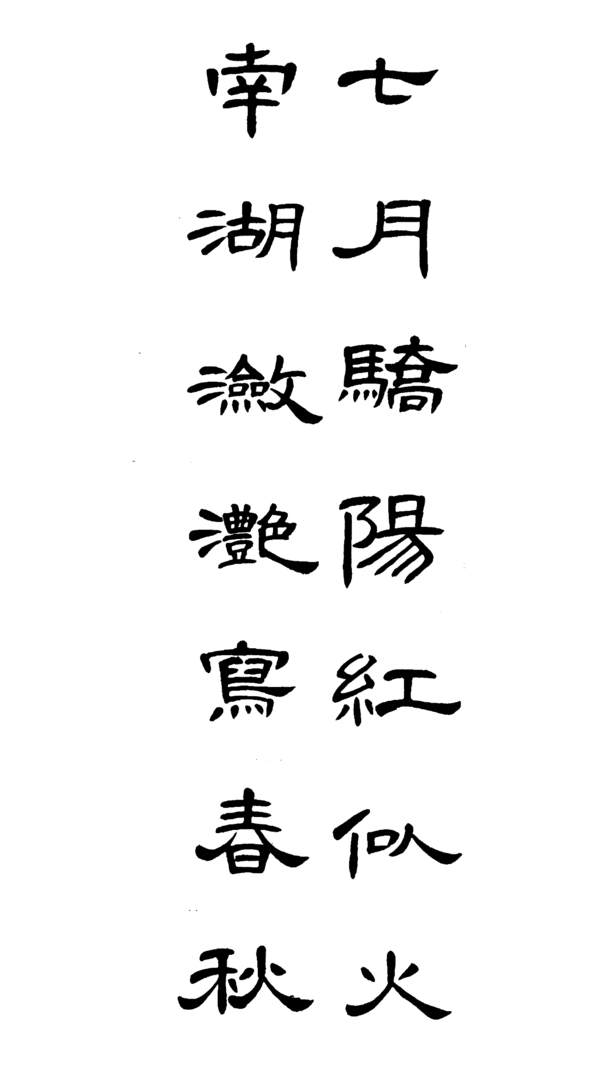 七月驕陽紅似火
南湖瀲灩寫春秋